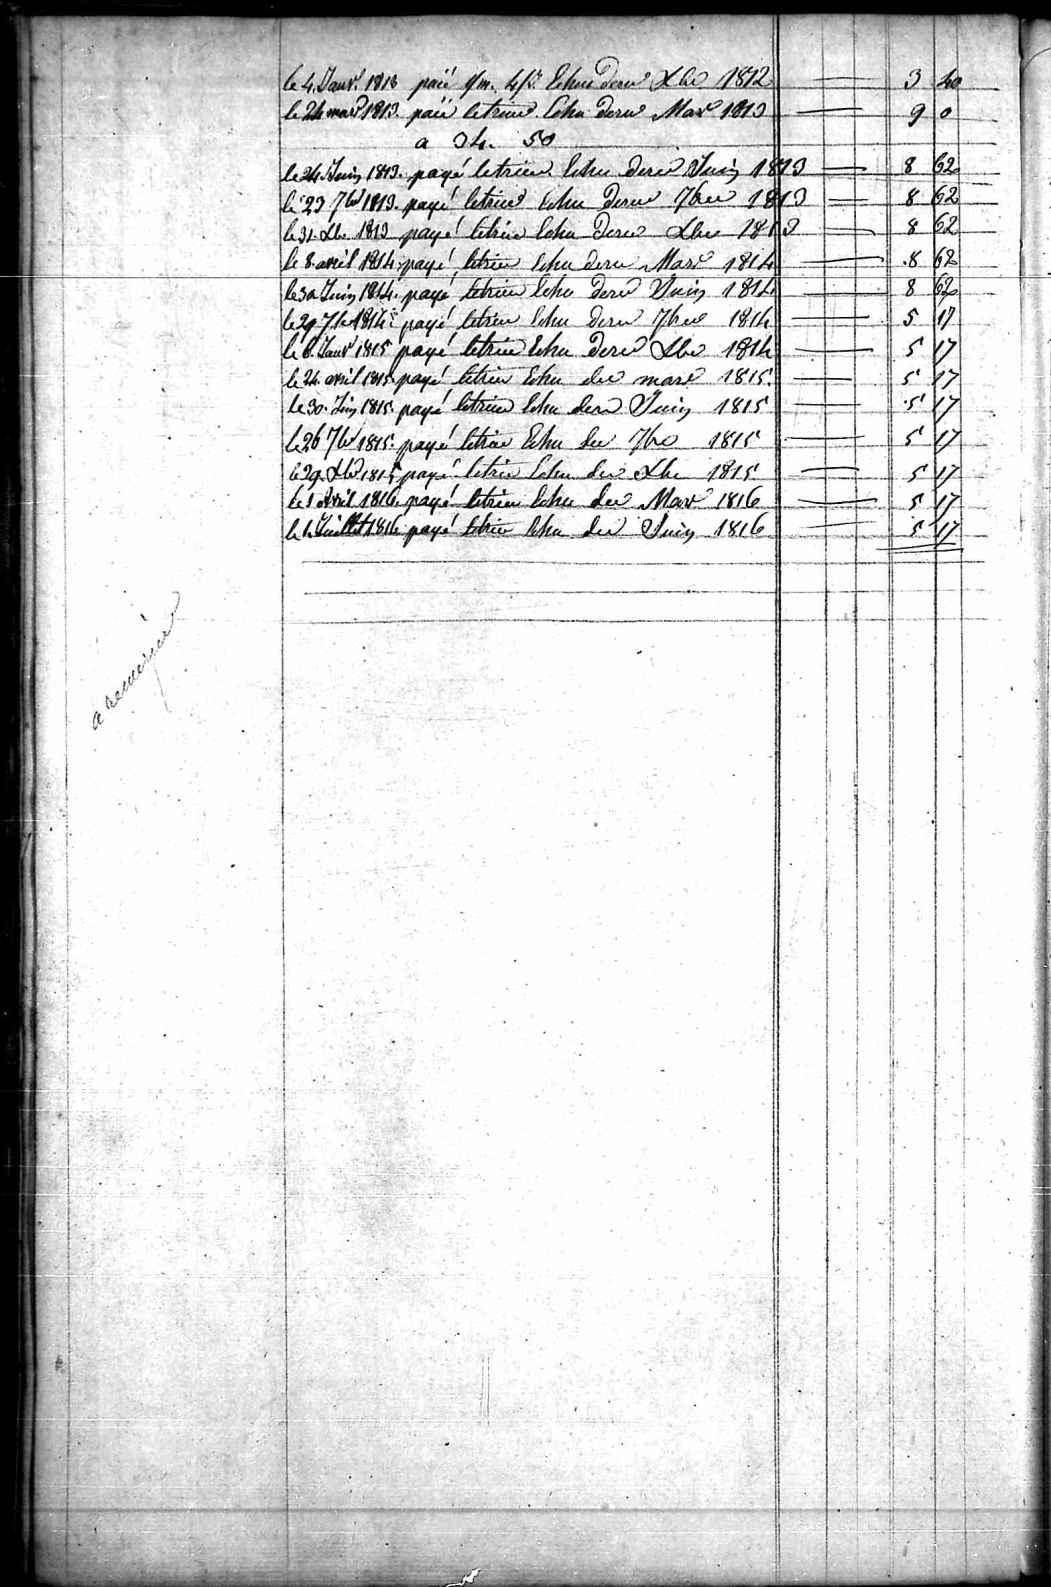 le 4. Janvr. 1813 paié 1/m. 4/s. Echu dernr Xbre 1812 3 40
le 24 mars 1813. paié letrim. Echu dernr Mars 1813 9 0
a 34. 50
le 24 Juin 1813. payé letrim Echu dernr Juin 1813 8 62
le 23 7br 1813. payé letrim Echu dernr 7bre 1813 8 62
le 31. Xbr. 1813 payé letrim Echu dernr Xbre 1813 8 62
le 8. avril 1814. payé letrim Echu dernr Mars 1814 8 62
le 30 Juin 1814. payé letrim Echu dernr Juin 1814 8 62
le 29 7br 1814. payé letrim Echu dernr 7bre 1814 5 17
le Janvr 1815 payé letrim Echu dernr Xbre 1814 5 17
le 24. avril 1815 payé letrim Echu der mars 1815. 5 17
le 30. Juin 1815. payé letrim Echu dern Juin 1815 5 17
le 26 7br 1815. payé letrim Echu der 7bre 1815 5 17
le 29. Xbr 1815 payé letrim Echu der Xbre 1815 5 17
le 1 avril 1816. payé letrim Echu der Mars 1816 5 17
le 1. Juillet 1816 payé letrim Echu der Juin 1816 5 17